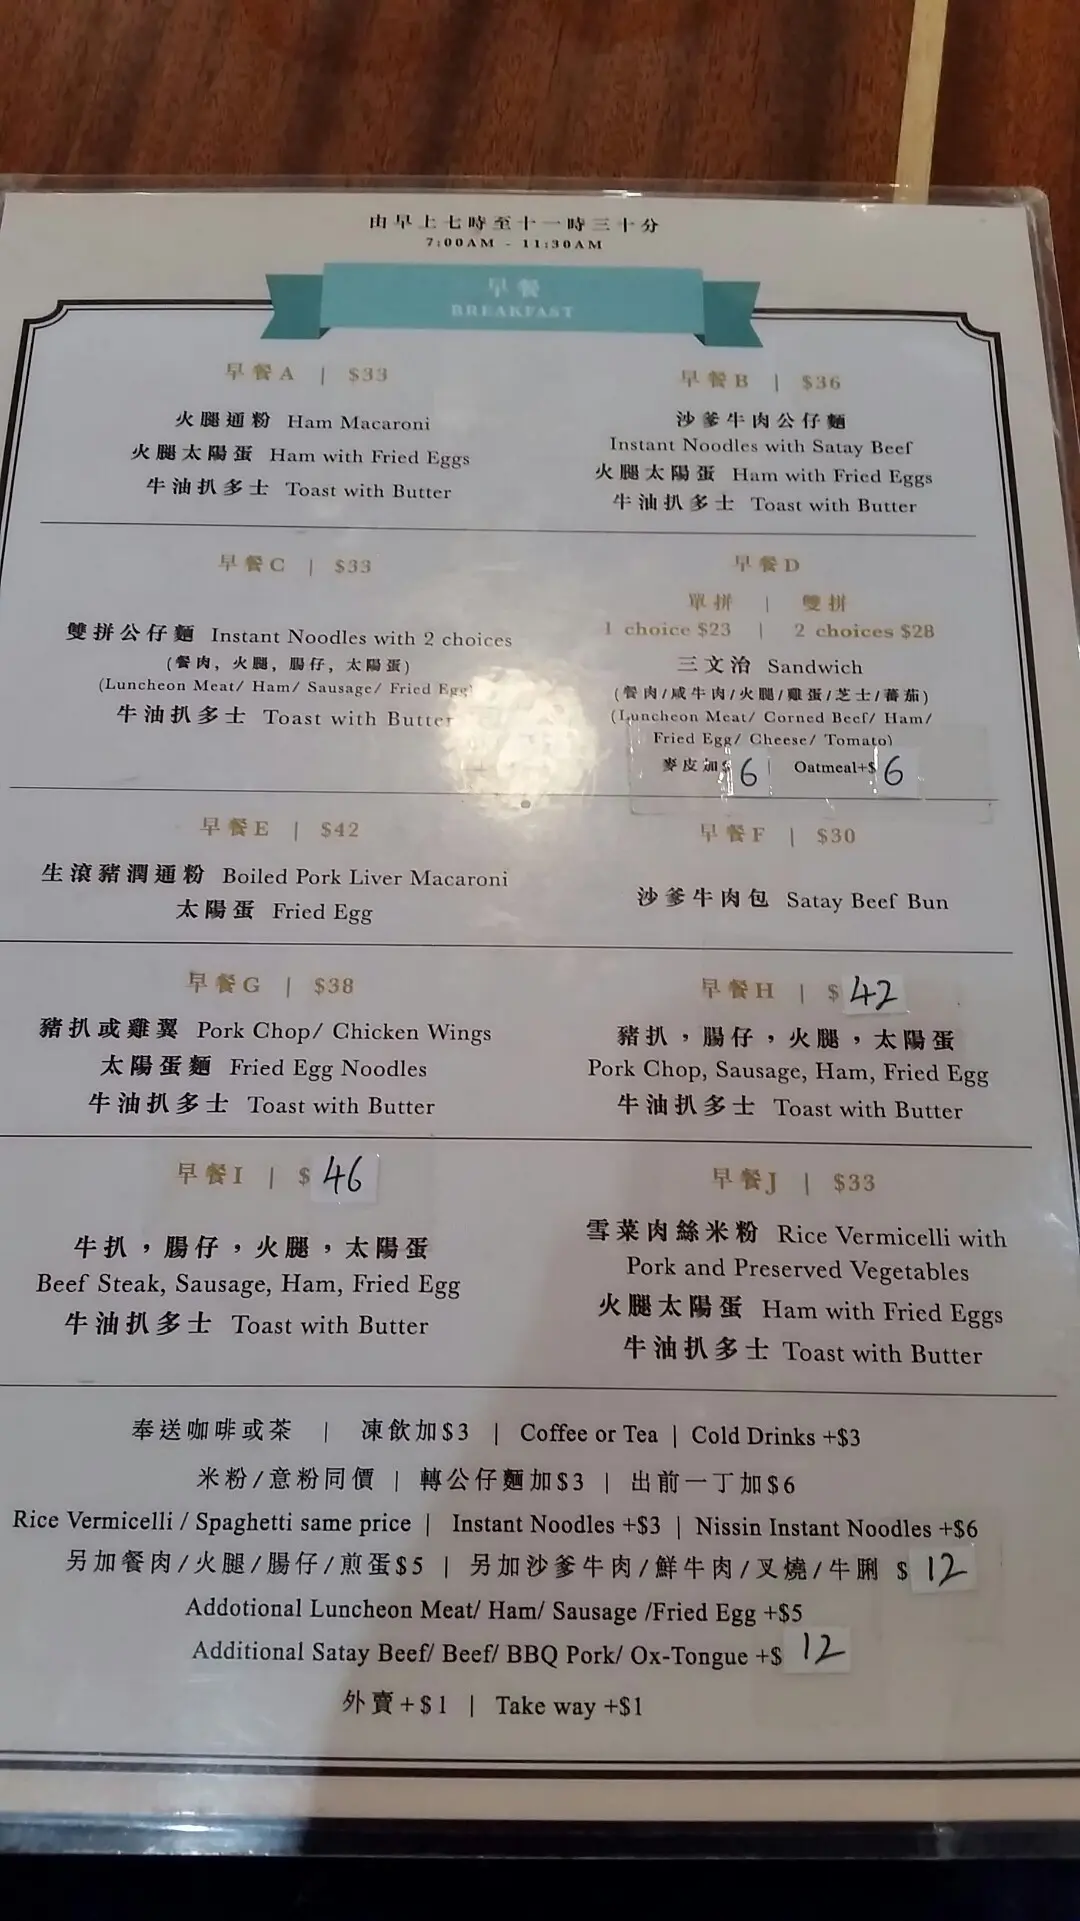 由早上七時至十一時三十分
7:00AM - 11:30AM
早餐
BREAKFAST
早餐A | $33
火腿通粉 Ham Macaroni
火腿太陽蛋 Ham with Fried Eggs
牛油扒多士 Toast with Butter
早餐B | $36
沙爹牛肉公仔麵
Instant Noodles with Satay Beef
火腿太陽蛋 Ham with Fried Eggs
牛油扒多士 Toast with Butter
早餐C | $33
雙拼公仔麵 Instant Noodles with 2 choices
(餐肉, 火腿, 腸仔, 太陽蛋)
(Luncheon Meat/ Ham/ Sausage/ Fried Egg)
牛油扒多士 Toast with Butter
早餐D
單拼 | 雙拼
1 choice $23 | 2 choices $28
三文治 Sandwich
(餐肉/咸牛肉/火腿/雞蛋/芝士/蕃茄)
(Luncheon Meat/ Corned Beef/ Ham/
Fried Egg/ Cheese/ Tomato)
麥皮加$6 | Oatmeal+$6
早餐E | $42
生滾豬潤通粉 Boiled Pork Liver Macaroni
太陽蛋 Fried Egg
早餐F | $30
沙爹牛肉包 Satay Beef Bun
早餐G | $38
豬扒或雞翼 Pork Chop/ Chicken Wings
太陽蛋麵 Fried Egg Noodles
牛油扒多士 Toast with Butter
早餐H | $42
豬扒，腸仔，火腿，太陽蛋
Pork Chop, Sausage, Ham, Fried Egg
牛油扒多士 Toast with Butter
早餐I | $46
牛扒，腸仔，火腿，太陽蛋
Beef Steak, Sausage, Ham, Fried Egg
牛油扒多士 Toast with Butter
早餐J | $33
雪菜肉絲米粉 Rice Vermicelli with
Pork and Preserved Vegetables
火腿太陽蛋 Ham with Fried Eggs
牛油扒多士 Toast with Butter
奉送咖啡或茶 | 凍飲加$3 | Coffee or Tea | Cold Drinks +$3
米粉/意粉同價 | 轉公仔麵加$3 | 出前一丁加$6
Rice Vermicelli / Spaghetti same price | Instant Noodles +$3 | Nissin Instant Noodles +$6
另加餐肉/火腿/腸仔/煎蛋$5 | 另加沙爹牛肉/鮮牛肉/叉燒/牛脷 $12
Addotional Luncheon Meat/ Ham/ Sausage /Fried Egg +$5
Additional Satay Beef/ Beef/ BBQ Pork/ Ox-Tongue +$12
外賣+$1 | Take way +$1